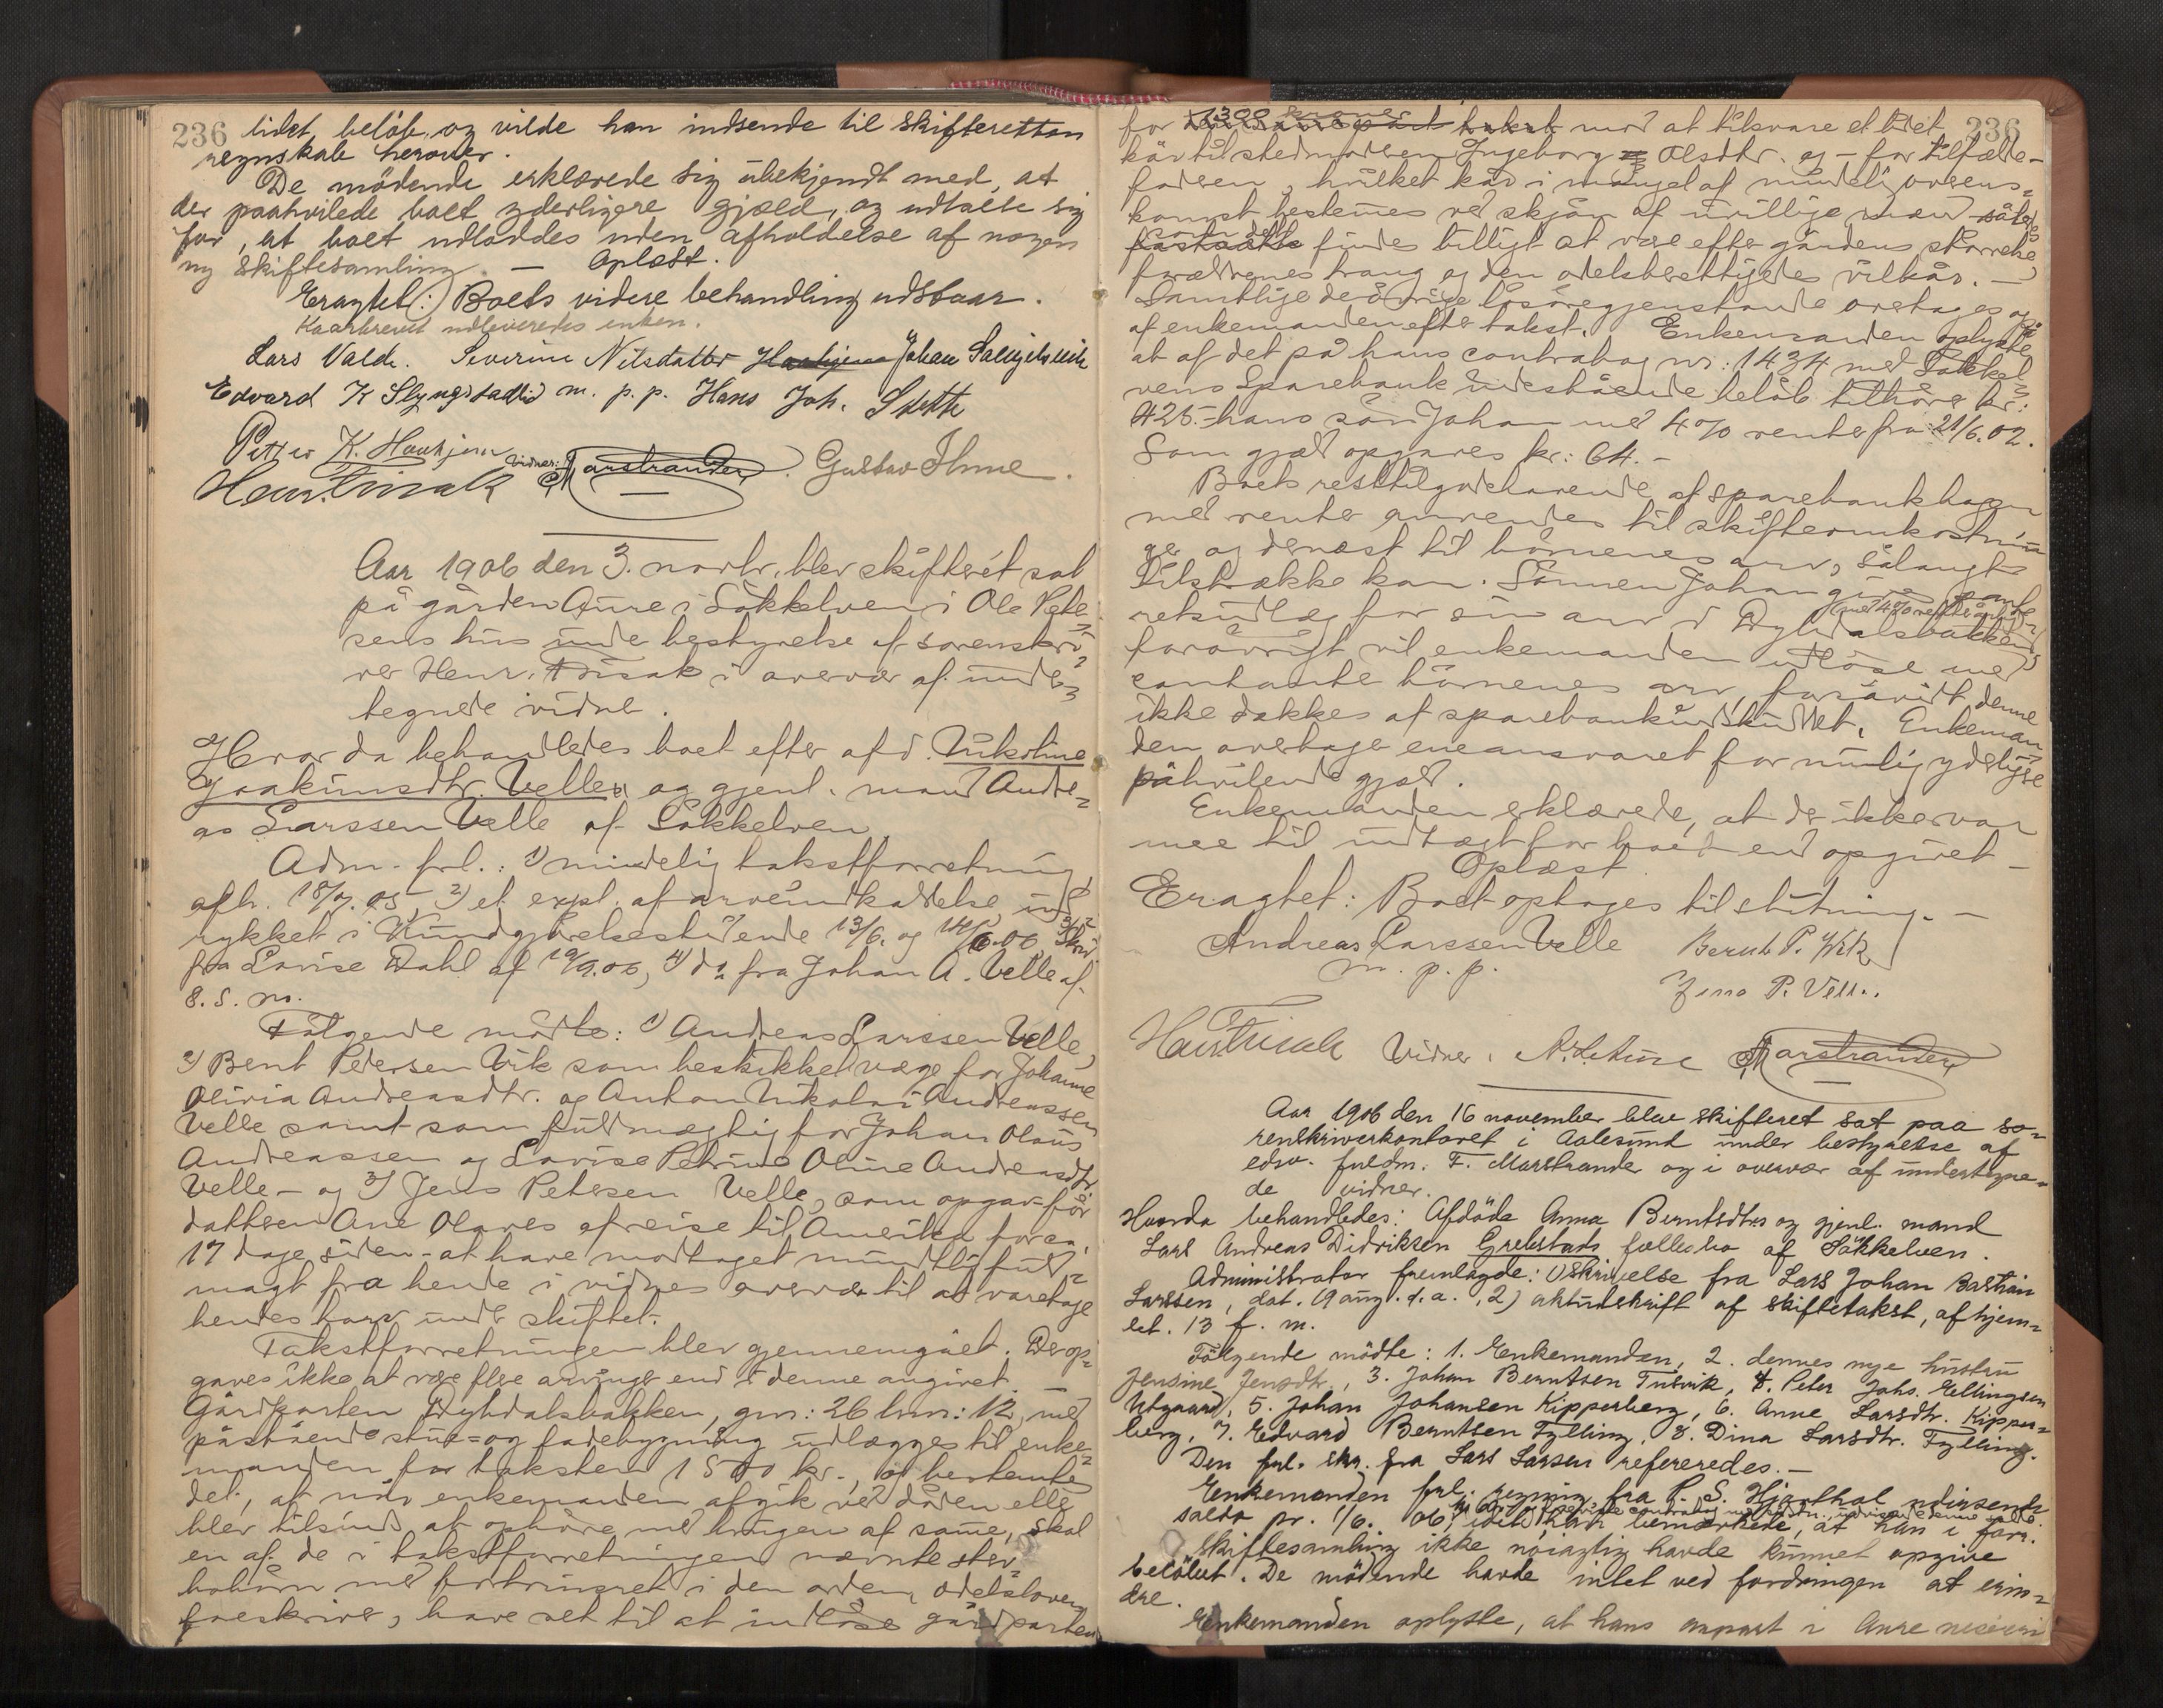 236
lidet beløb og vilde han indsende til skifteretten
regnskab herover.
De mødende erklærede sig ubekjendt med, at
der paahvilede boet yderligere gjæld, og udtalte sig
for, at boet udloddes uden afholdelse af nogen
ny skiftesamling. — Oplæst.
Eragtet: Boets videre behandling udstaar.
Kaarbrevet udleveredes enken.
Lars Valde. Severine Nilsdatter Johan
Edvard K Slyngstadlid m. p. p. Hans Joh.
Petter K. Haukjem Vidner: F Marstrander. Gustav Ihme.
Henr. Finsak
Aar 1906 den 3. novbr. blev skifteret sat
på gården Aure i Søkkelven i Ole Peter-
sens hus under bestyrelse af sorenskri-
ver Henr. Finsak i overvær af under-
tegnede vidne.
Hvor da behandledes boet efter afd. Nikoline
Joakimsdtr. Velle og gjenl. mand Andre-
as Larssen Velle af Søkkelven.
Adm. frl.: 1) mindelig takstforretning
afh. 18/7. 05, 2) et expl. af arveindkaldelse ind-
rykket i Kundgjørelsestidende 13/6. og 14/6. 06, 3) skriv.
fra Lovise Dahl af 19/9. 06, 4) do fra Johan A. Velle af
8. s. m.
Følgende mødte: 1) Andreas Larssen Velle,
2) Bent Petersen Vik som beskikket værge for Johanne
Olivia Andreasdtr. og Anton Nikolai Andreassen
Velle samt som fuldmægtig for Johan Olaus
Andreassen og Lovise Petrine Oline Andreasdtr.
Velle — og 3) Jens Petersen Velle, som opgav før
datteren Ane Olaves afreise til Amerika for ca.
17 dage siden — at have modtaget mundtlig fuld-
magt fra hende i vidners overvær til at varetage
hendes tarv under skiftet.
Takstforretningen blev gjennemgået. Der op-
gaves ikke at være flere arvinger end i denne angivet.
Gårdparten Dyhdalsbakken, gno: 26 bno: 12, med
påstående stue- og fadebygning udlægges til enke-
manden for taksten 1500 kr., og bestemte
det, at når enkemanden afgik ved døden eller
blev tilsinds at ophøre med brugen af samme, skal
en af de i takstforretningen nævnte stervbo-
børn med fortrinsret i den orden, odelsloven
foreskriver, have ret til at indløse gårdparten
236
for 1300 kroner takst mod at tilsvare et lidet
kår til stedmoderen Ingeborg Olsdtr. og — for tilfælde —
faderen, hvilket kår i mangel af mindelig overens-
komst bestemmes ved skjøn af uvillige mænd således
som det findes billigt at være efter gårdens størrelse,
forældrenes trang og den odelsberettigedes vilkår. —
Samtlige de øvrige løsøregjenstande overtages og
af enkemanden efter takst. Enkemanden oplyste
at af det på hans contrabog nr: 1434 med Søkkel-
vens Sparebank indestående beløb tilhører kr:
425.— hans søn Johan med 4 % rente fra 21/6. 02.
Som gjæld opgaves kr: 64. —
Boets resttilgodehavende af sparebankbogen
med renter anvendes til skifteomkostnin-
ger og dernæst til børnenes arv, sålangt
tilstrække kan. Sønnen Johan gives pante-
ret udlæg for sin arv i Dyhdalsbakken,
forøvrigt vil enkemanden udløse med
contante børnenes arv, forsåvidt denne
ikke dækkes af sparebankindskuddet. Enkeman-
den overtager eneansvaret for mulig yderligere
påhvilende gjæld.
Enkemanden erklærede, at der ikke var
mer til indtægt for boet end opgivet —
Oplæst.
Eragtet: Boet optages til slutning. —
Andreas Larssen Velle Bernt P. Wik
m. p. p.
Jens P. Velle.
Henr Finsak Vidner: F Marstrander
Aar 1906 den 16 november blev skifteret sat paa so-
renskriverkontoret i Aalesund under bestyrelse af
edsv. fuldm. F. Marstrander og i overvær af undertegne-
de vidner.
Hvorda behandledes: Afdøde Anna Berntsdtrs og gjenl. mand
Lars Andreas Didriksen Grebstads fællesbo af Søkkelven.
Administrator fremlagde: 1) skrivelse fra Lars Johan Bastian
Larssen, dat. 19 aug. d. a., 2) aktudskrift af skiftetakst, afhjem-
let. 13 f. m.
Følgende mødte: 1. Enkemanden, 2. dennes nye hustru
Jensine Jensdtr., 3. Johan Berntsen Tusvik, 4. Peter Johs. Ellingsen
Utgaard, 5. Johan Johansen Kipperberg, 6. Anne Larsdtr. Kipper-
berg, 7. Edvard Berntsen Fylling, 8. Dina Larsdtr. Fylling.
Den frl. skr. fra Lars Larsen refereredes. —
Enkemanden frl. regning fra P. S. Hjorthol udvisende
saldo pr. 1/6. 06, idet han bemærkede, at han i forr.
skiftesamling ikke nøiagtig havde kunnet opgive
beløbet. De mødende havde intet ved fordringen at erin-
dre.
Enkemanden oplyste, at hans anpart i Aure meieri